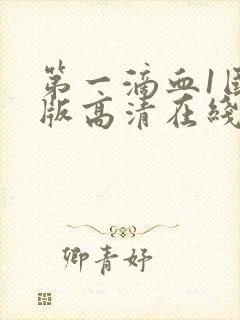 第一滴血1国
版高清在线
卿青妤